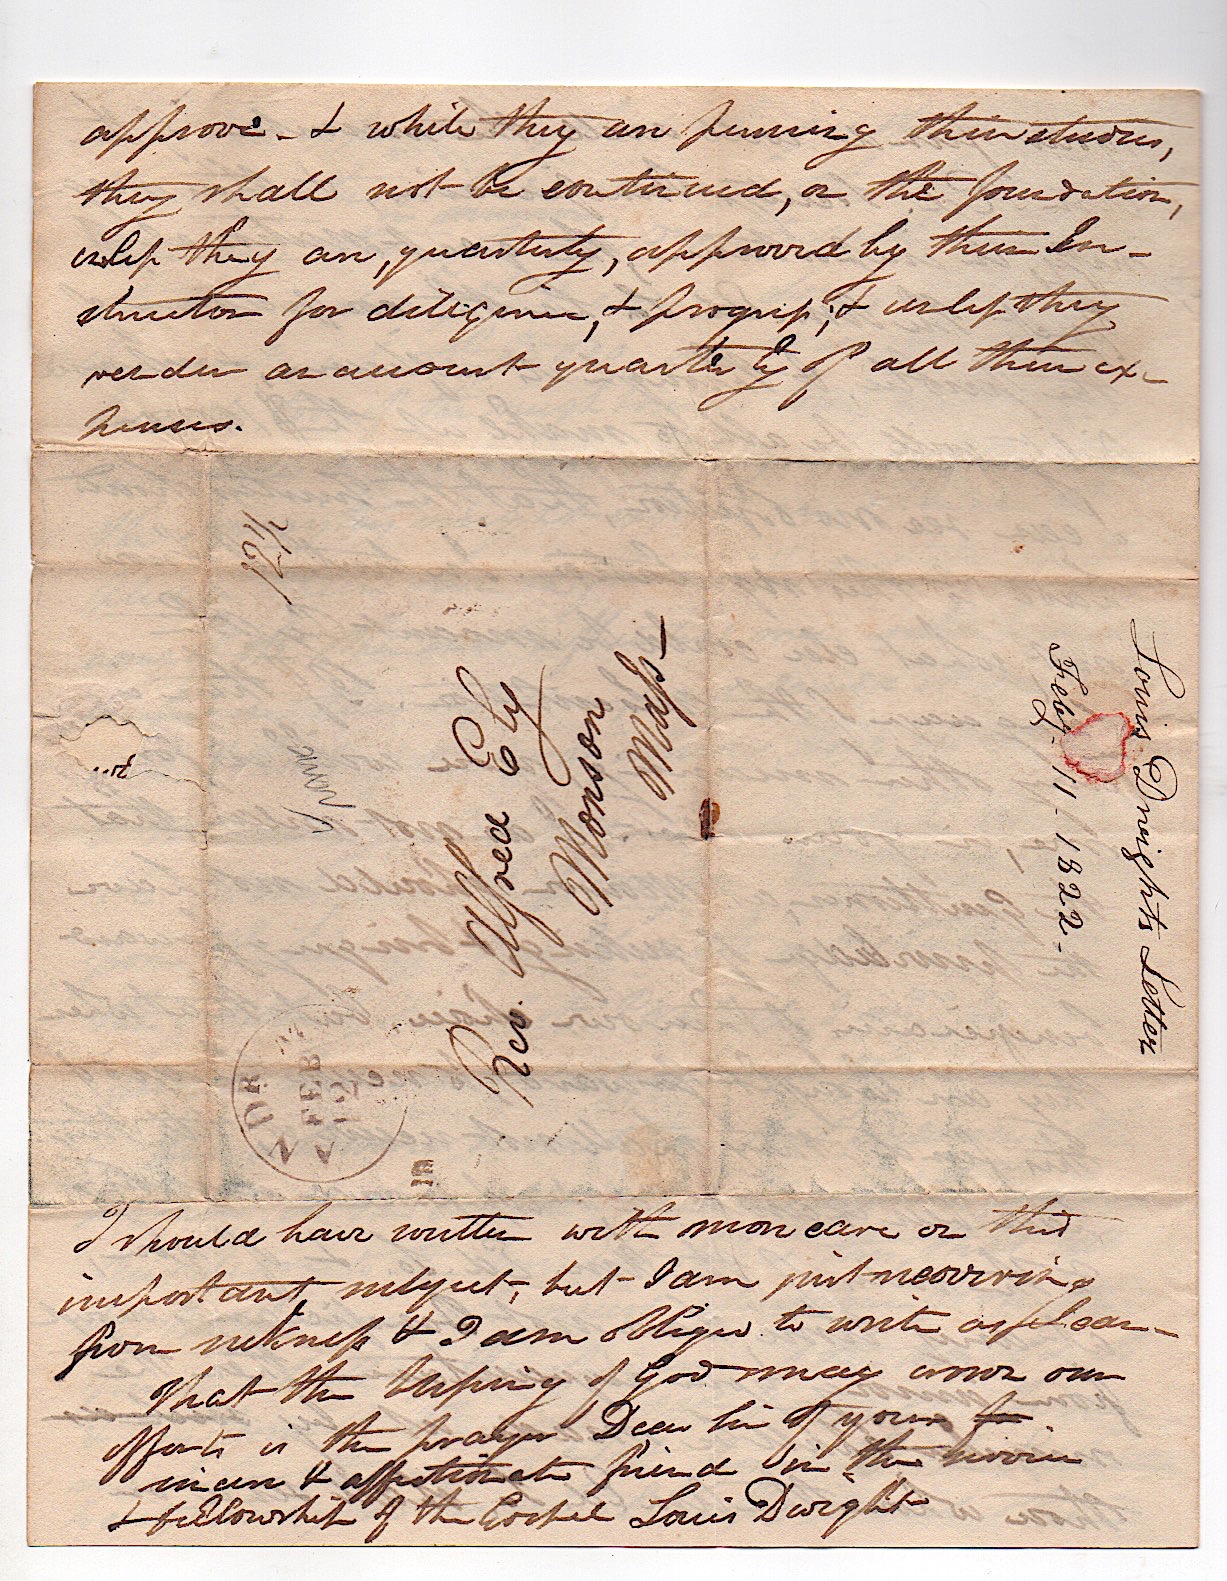 approve - & while they are pursuing their studies,
they shall not be continued, on the foundation,
unless they are, quarterly, approved by their In-
structor for diligence, & progress; & unless they
render an account quarterly of all their ex-
penses.
12½
Rev. Alfred Ely
Monson
Mass
FEB
12
Louis Dwights Letter
Feby - 11 - 1822 -
I should have written with more care on this
important subject, but I am just recovering
from sickness & I am obliged to write as I can -
That the blessing of God may crown our
efforts is the prayer Dear Sir of your
sincere & affectionate friend in the service
& fellowship of the Gospel Louis Dwight